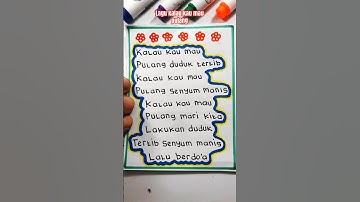 Lagu kalau kau mau
pulang
Kalau kau mau
Pulang duduk tertib
Kalau kau mau
Pulang senyum manis
Kalau kau mau
Pulang mari kita
Lakukan duduk
Tertib senyum manis
Lalu berdo'a